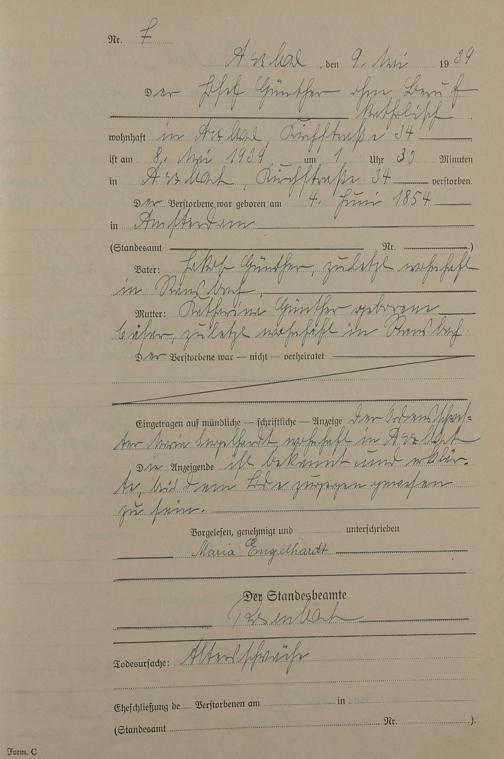 Nr. 7
Arzbach, den 9. Mai 1939
Der Josef Günther ohne Beruf
katholisch
wohnhaft in Arzbach Kirchstraße 34
ist am 8. Mai 1939 um 1 Uhr 30 Minuten
in Arzbach, Kirchstraße 34 verstorben.
Der Verstorbene war geboren am 4. Juni 1854
in Amsterdam
(Standesamt Nr. )
Vater: Jakob Günther, zuletzt wohnhaft
in Ransbach,
Mutter: Katharina Günther geborene
zuletzt wohnhaft in Ransbach.
Der Verstorbene war — nicht — verheiratet
Eingetragen auf mündliche — schriftliche — Anzeige der Ordensschwes-
ter Maria Engelhardt, wohnhaft in Arzbach
Die Anzeigende ist bekannt und erklär-
te, bei dem Tode zugegen gewesen
zu sein.
Vorgelesen, genehmigt und unterschrieben
Maria Engelhardt
Der Standesbeamte
Todesursache: Altersschwäche
Eheschließung de Verstorbenen am in
(Standesamt Nr. ).
Form. C